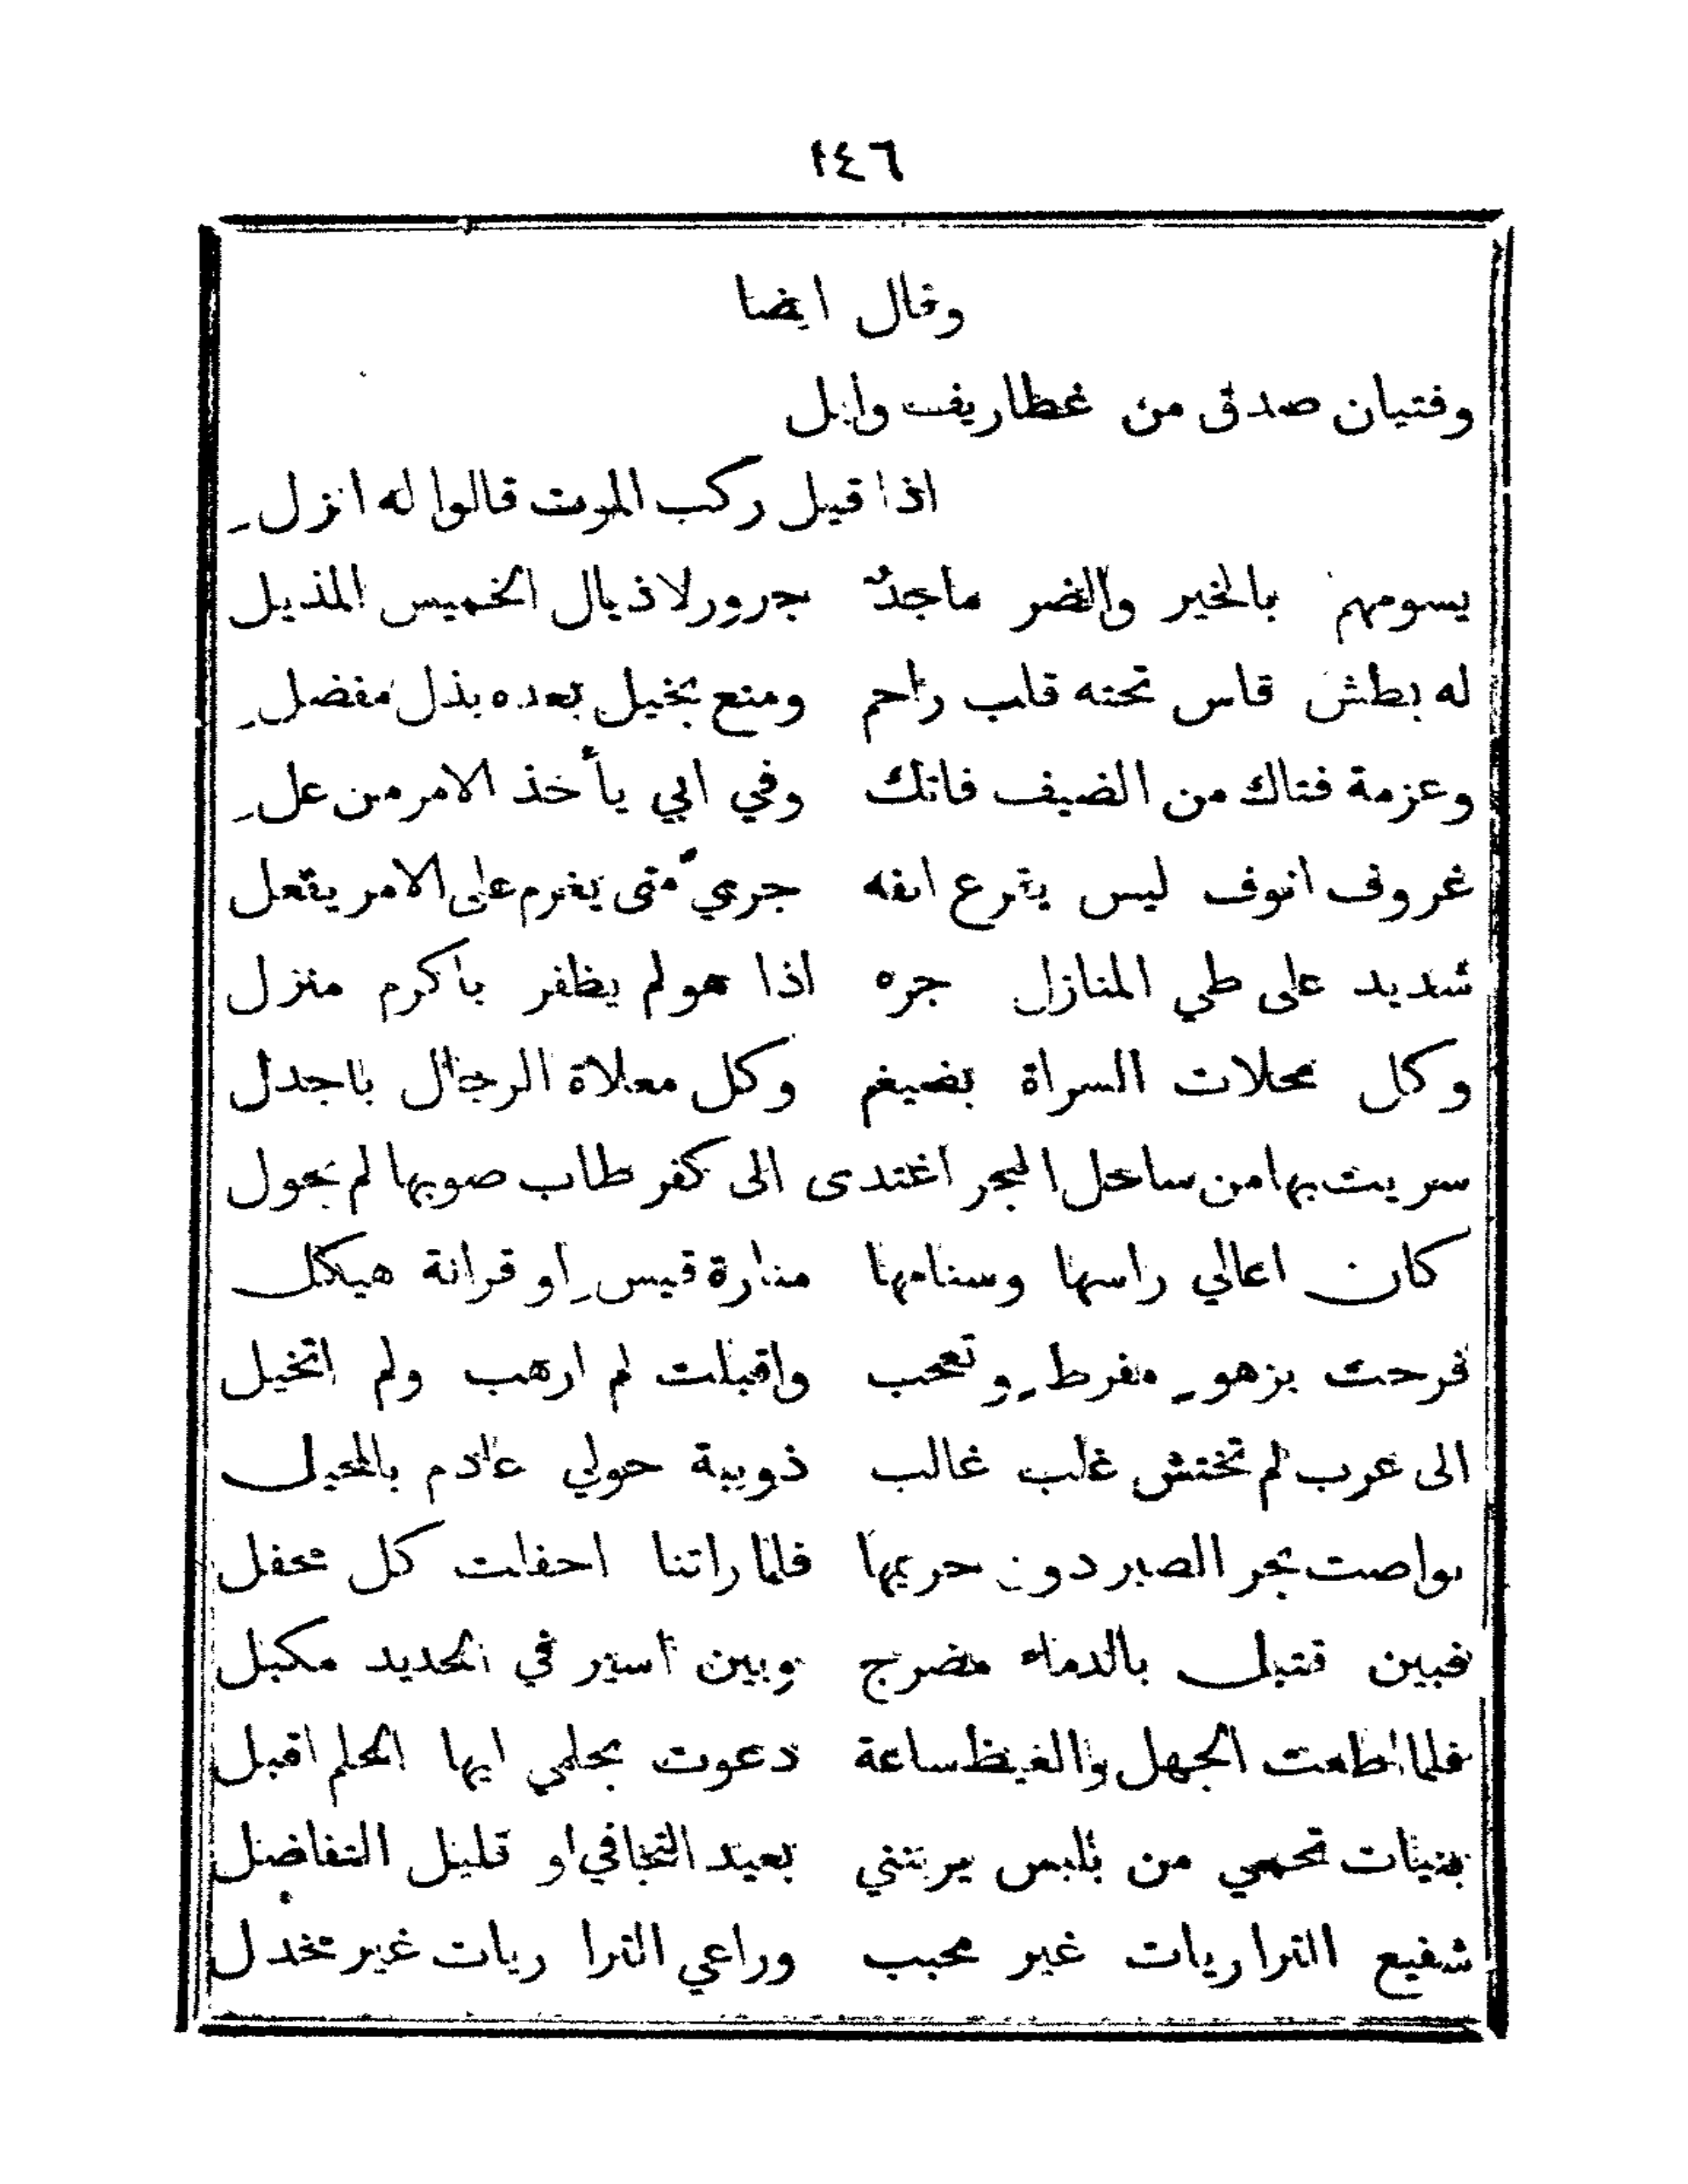 ١٤٦
وقال ايضا
وفتيان صدق من غطاريف وايل
اذا قيل ركب الموت قالوا له انزل
يسومهم بالخير والضر ماجد جرور لاذيال الخميس المذيل
له بطش قاس تحته قلب راحم ومنع بخيل بعده بذل مفضل
وعزمة فتاك من الضيف فاتك وفي ابي يأخذ الامر من عل
غروف انوف ليس يقرع انفه جري متى يغرم على الامر يفعل
شديد على طي المنازل جره اذا هو لم يظفر باكرم منزل
وكل محلات السراة بضيغم وكل معلاة الرجال باجدل
سريت بها من ساحل البحر اغتدى الى كفر طاب صوبها لم يحول
كان اعالي راسها وسنامها منارة قيس او قرانة هيكل
فرحت بزهو مفرط وتعجب واقبلت لم ارهب ولم اتخيل
الى عرب لم تختش غلب غالب ذويبة حولي عادم بالمحيل
تواصت بحر الصبر دون حريمها فلما راتنا احفلت كل محفل
فبين قتيل بالدماء مضرج وبين اسير في الحديد مكبل
فلما اطعت الجهل والغيظ ساعة دعوت بحلمي ايها الحلم اقبل
بنيات تحمي من بلبس يرتنني بعيد التجافي او قليل التفاضل
شفيع النزاريات غير محبب وراعي النزا ريات غير مخدل